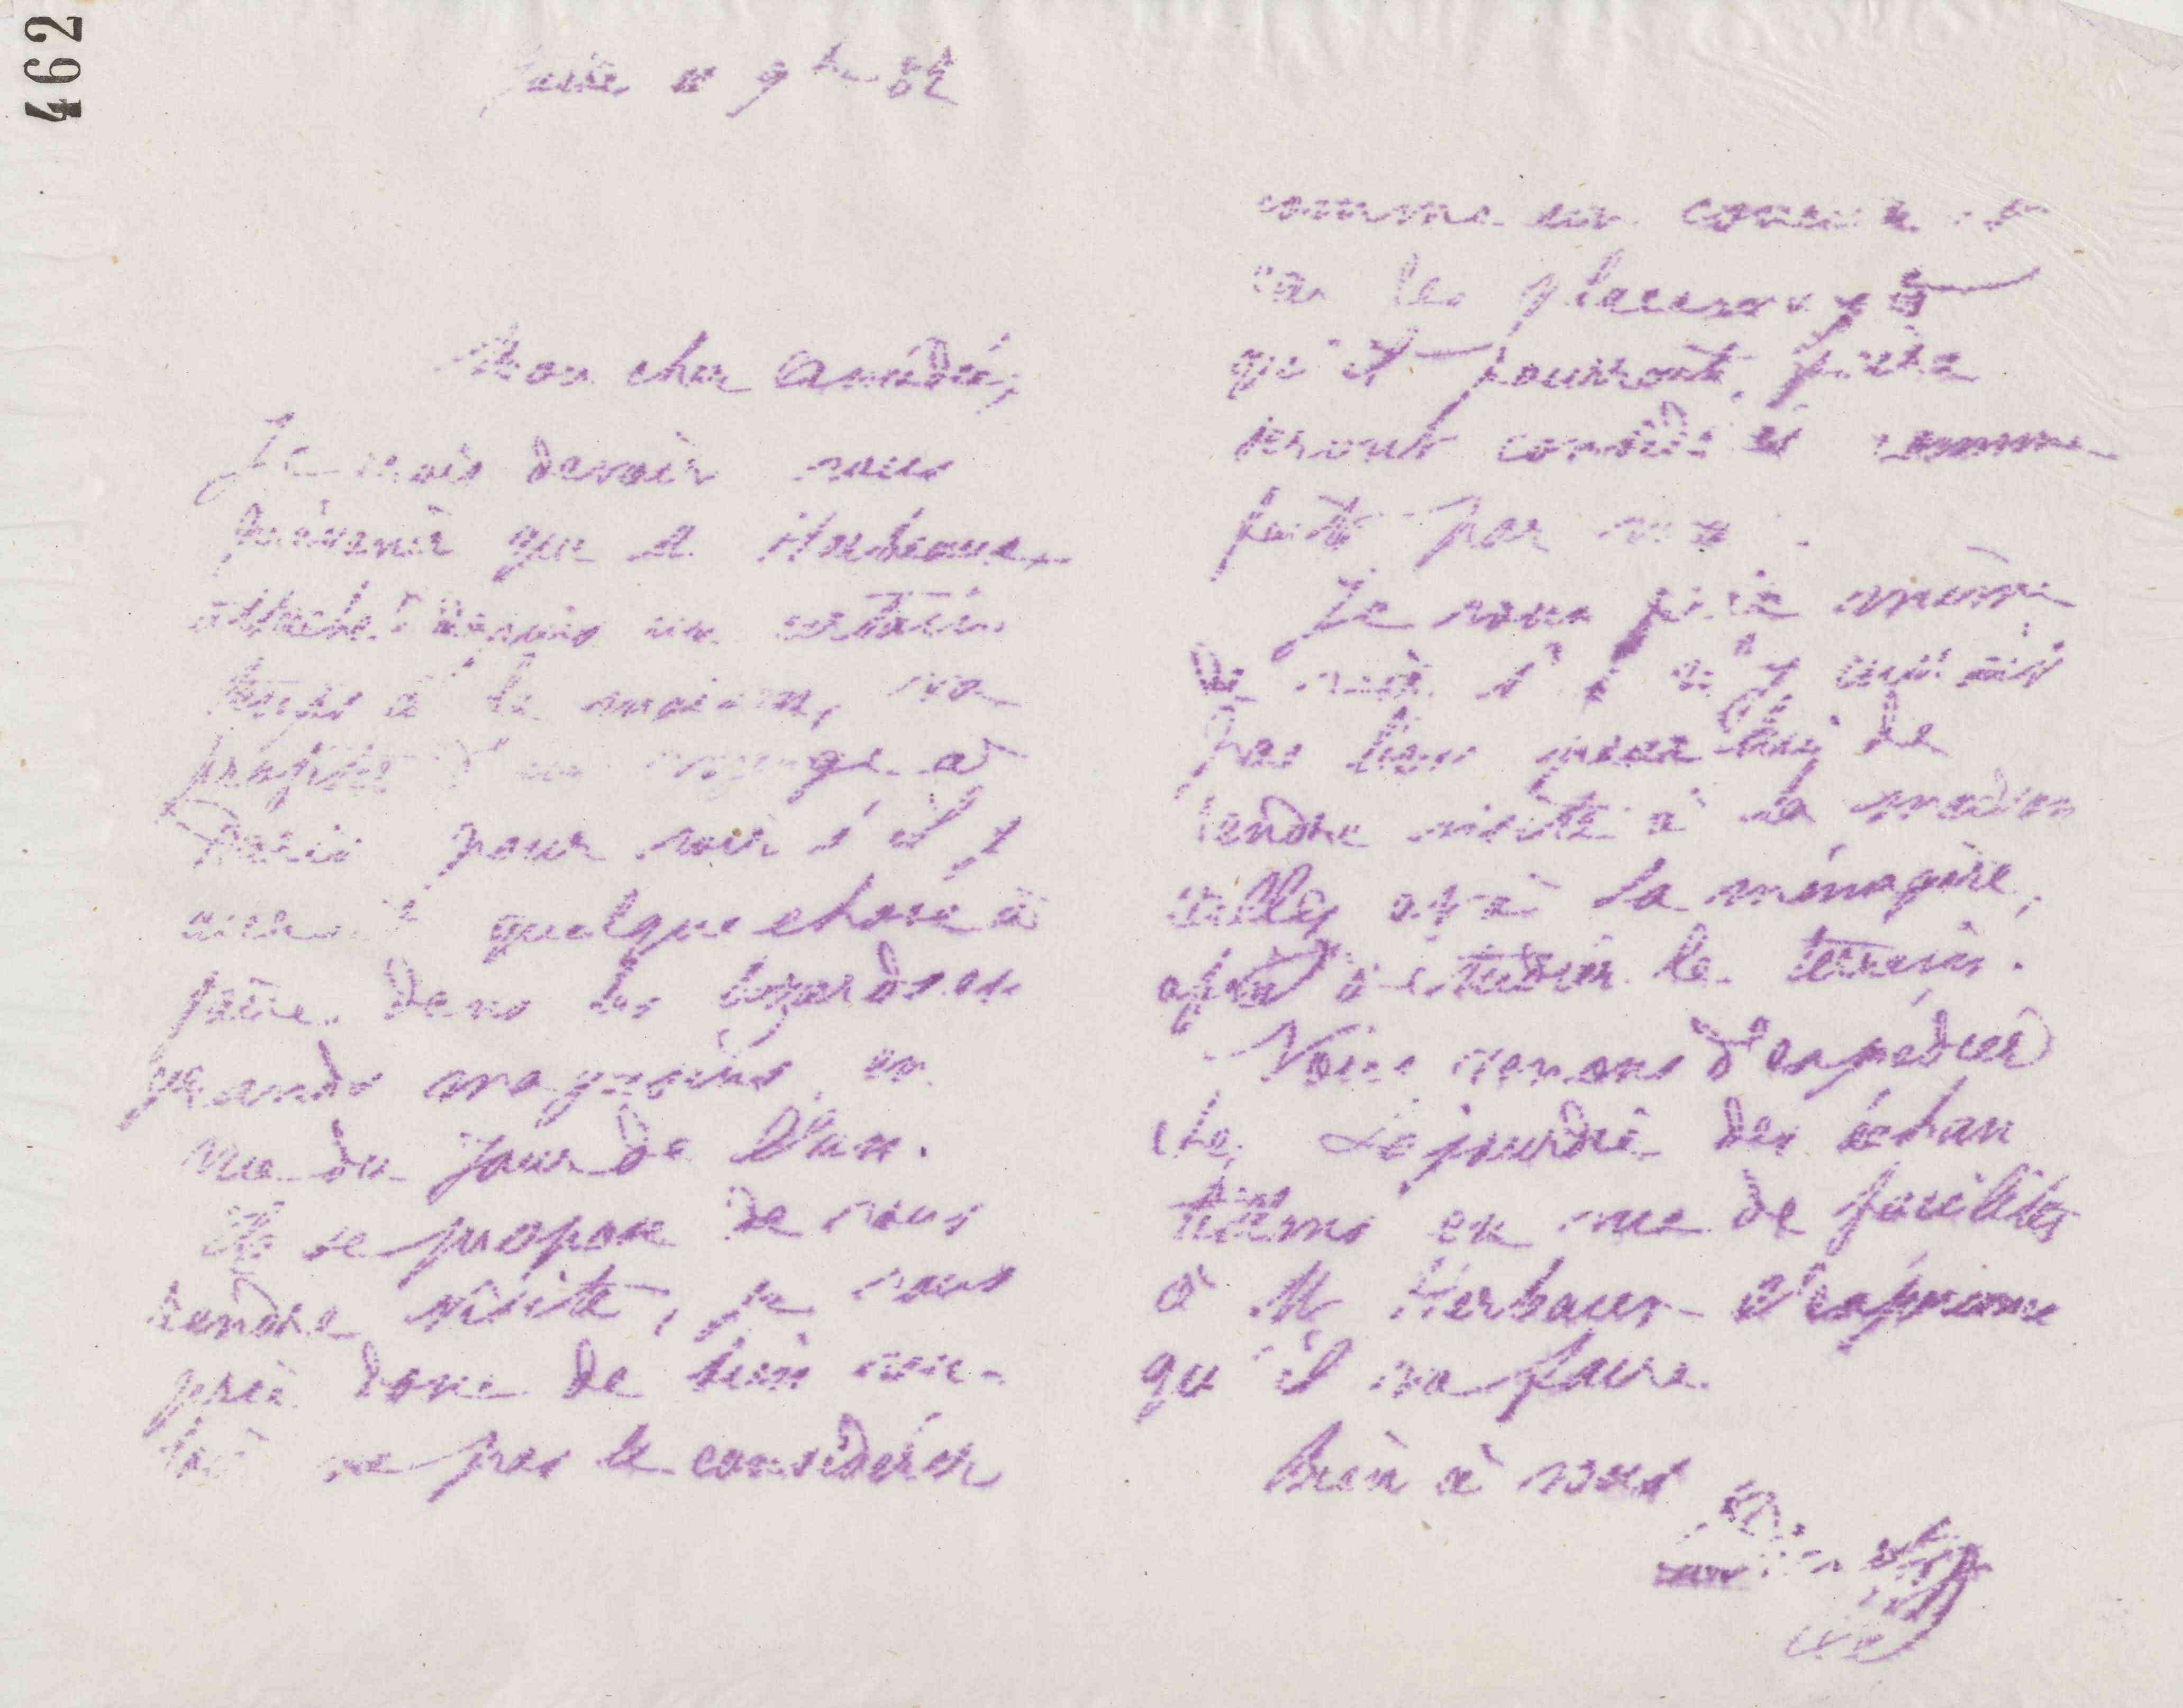 462
Guise 9bre 82
Mon cher Amédée,
Je crois devoir vous
prévenir que M. Herbeaux
attaché depuis un certain
temps à la maison, va
profiter d'un voyage à
Paris pour voir s'il y
aurait quelque chose à
faire dans les bazards et
grands magasins en
vue du Jour de l'an.
Il se propose de vous
rendre visite, je vous
prie donc de bien vou-
loir ne pas le considérer
comme un
car les placements
qu'il pourrait faire
seront considérés comme
faits par vous.
Je vous prie même
de voir s'il n'y aurait
pas lieu pour lui de
rendre visite à la maison
à la ménagère,
afin d'étudier le terrain.
Nous venons d'expédier
chez Dejourdré des échan
tillons en vue de faciliter
à M Herbaux
qu'il va faire.
Bien à vous